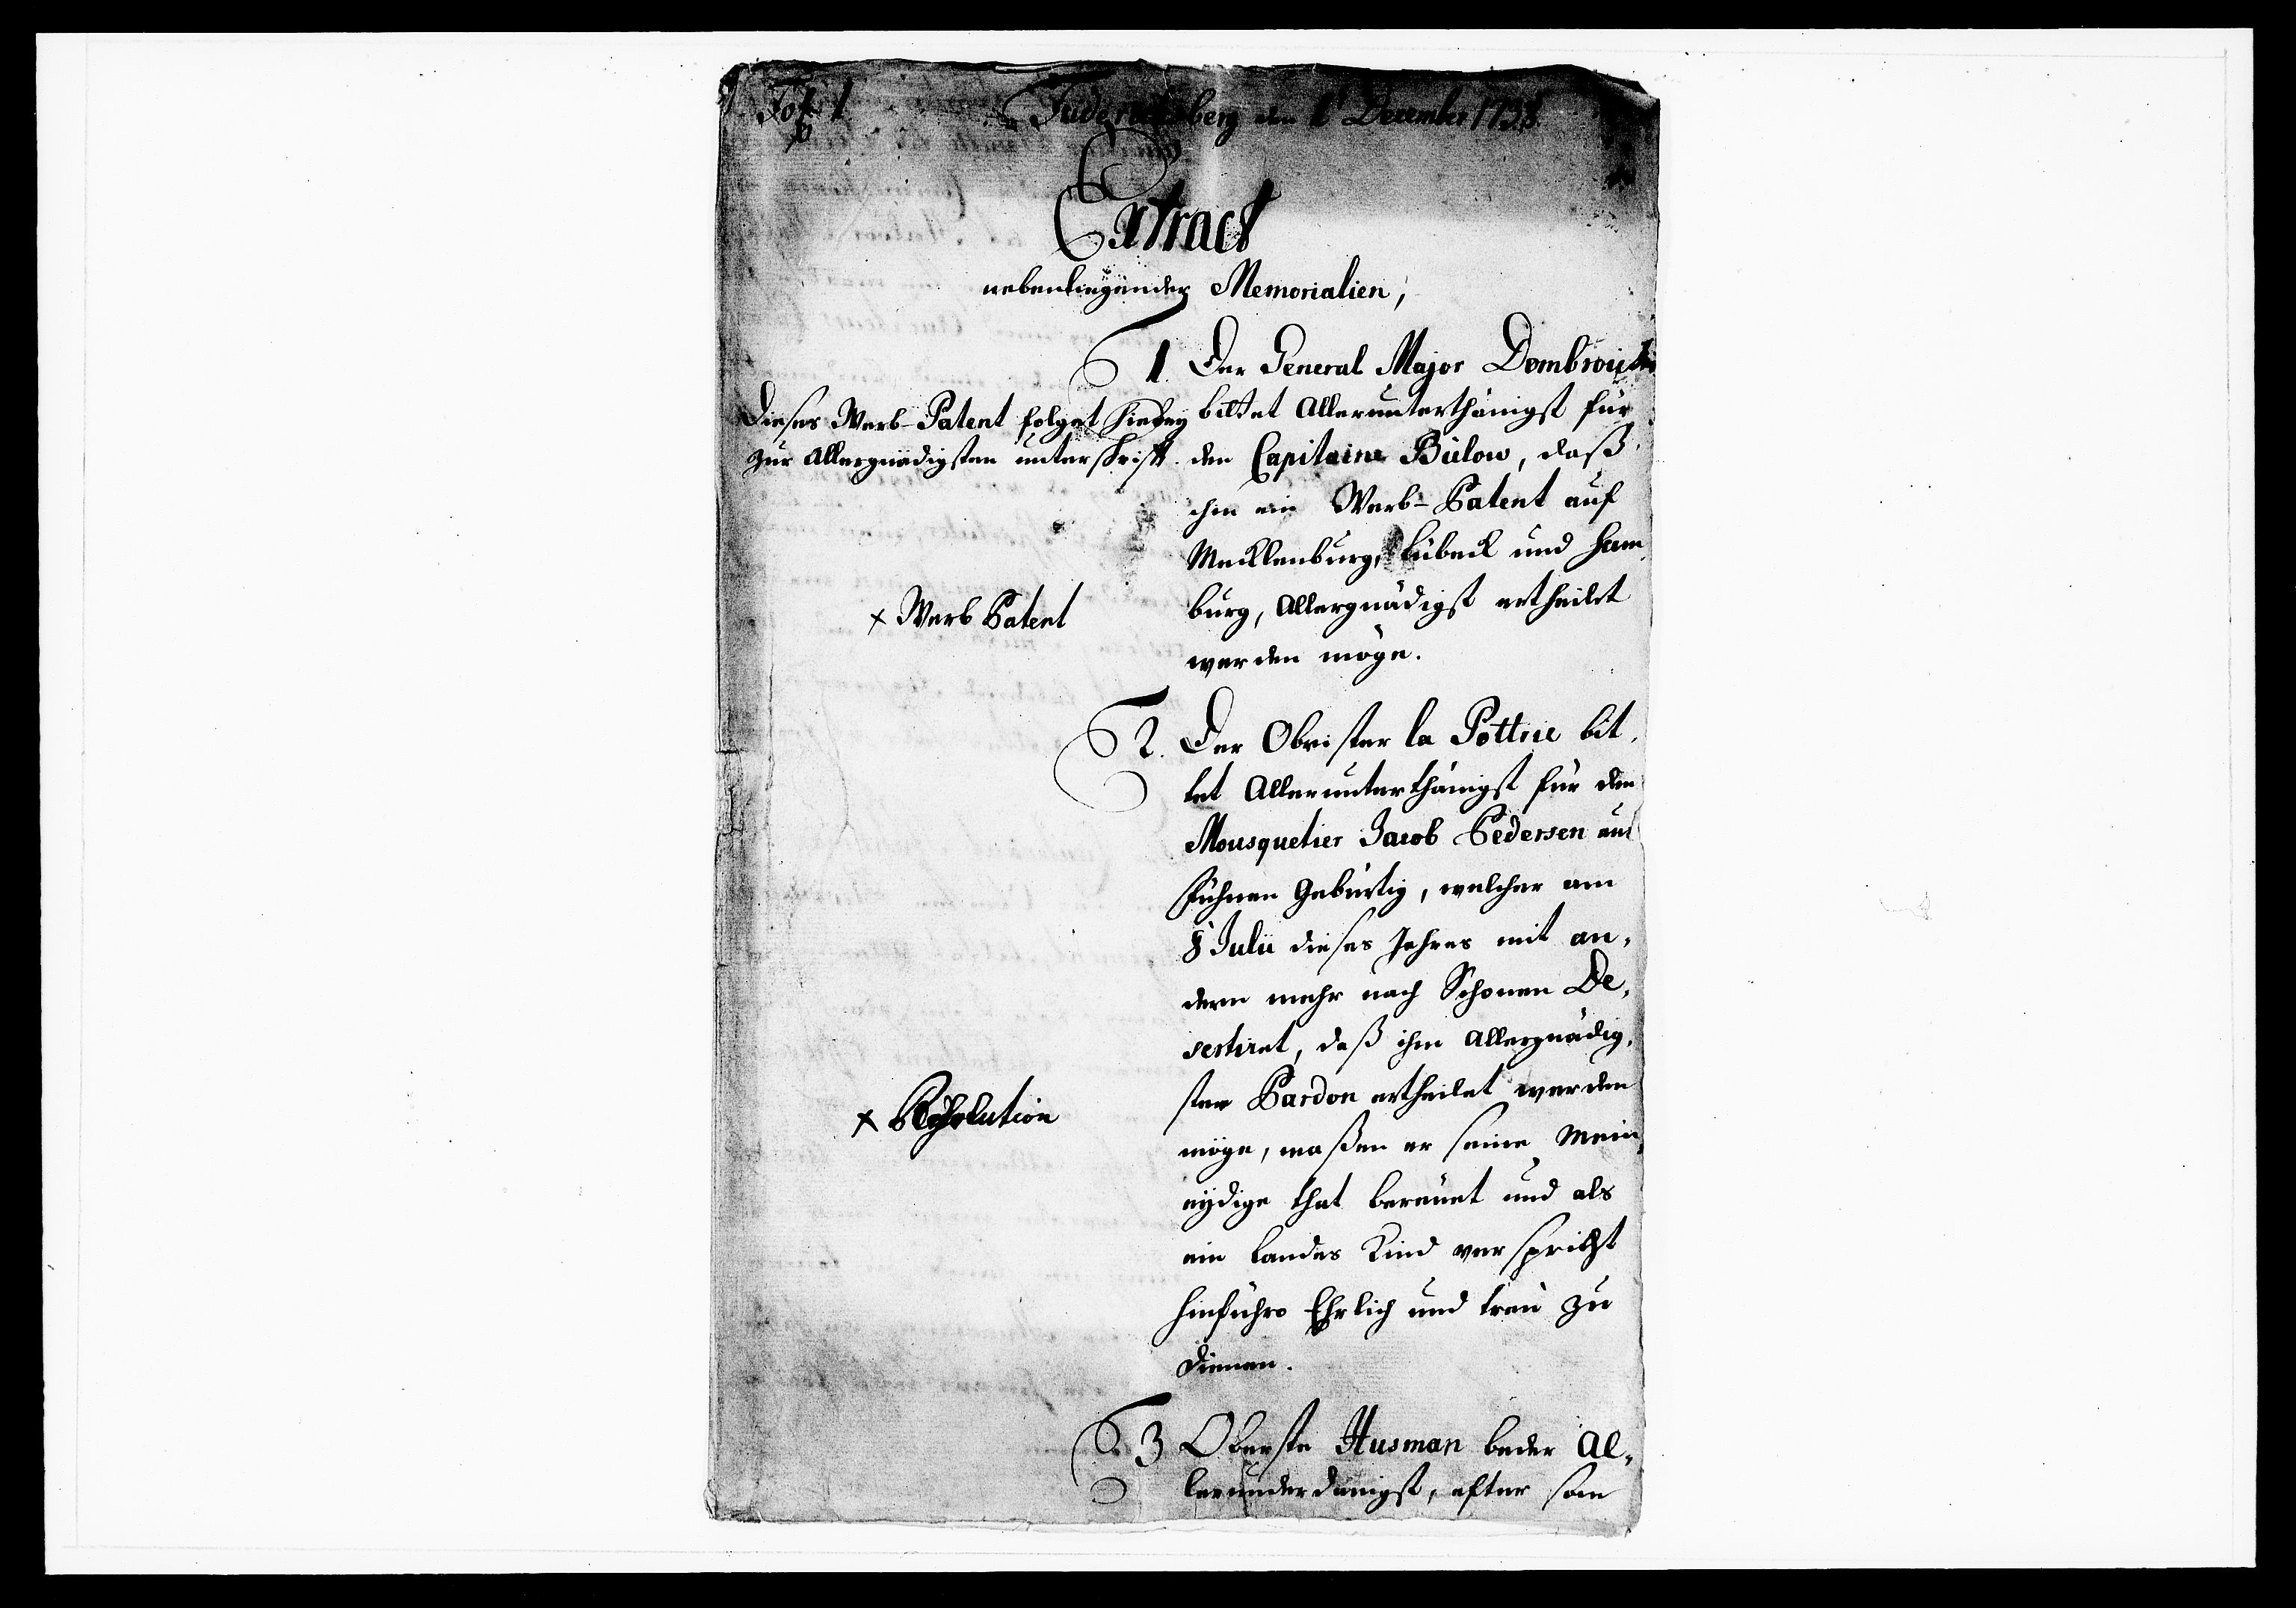 Friderichsberg den 1 December 1738.
Extract
nebenliegender Memorialien,
1. Der General Major Dombroick
bittet Allerunterthänigst für
den Capitaine Bülow, daß
ihm ein Werb-Patent auf
Mecklenburg, Lübeck und Ham-
burg, Allergnädigst ertheilet
werden möge.
Dieses Werb-Patent folget hiebey
zur Allergnädigsten unterschrifft.
+ Werb Patent
2. Der Obrister la Pottrie bit-
tet Allerunterthänigst für den
Mousquetier Jacob Pedersen aus
Fühnen Gebürtig, welcher am
8 Julii dieses Jahres mit an-
dern mehr nach Schonen De-
sertiret, daß ihm Allergnädig-
ster Pardon ertheilet werden
möge, maßen er seine Mein-
eydige that bereüet und als
ein Landes Kind verspricht
hinführo Ehrlich und treü zu
dienen.
+ Resolution
3 Oberste Husman beder Al-
lerunderdanigst, efter som